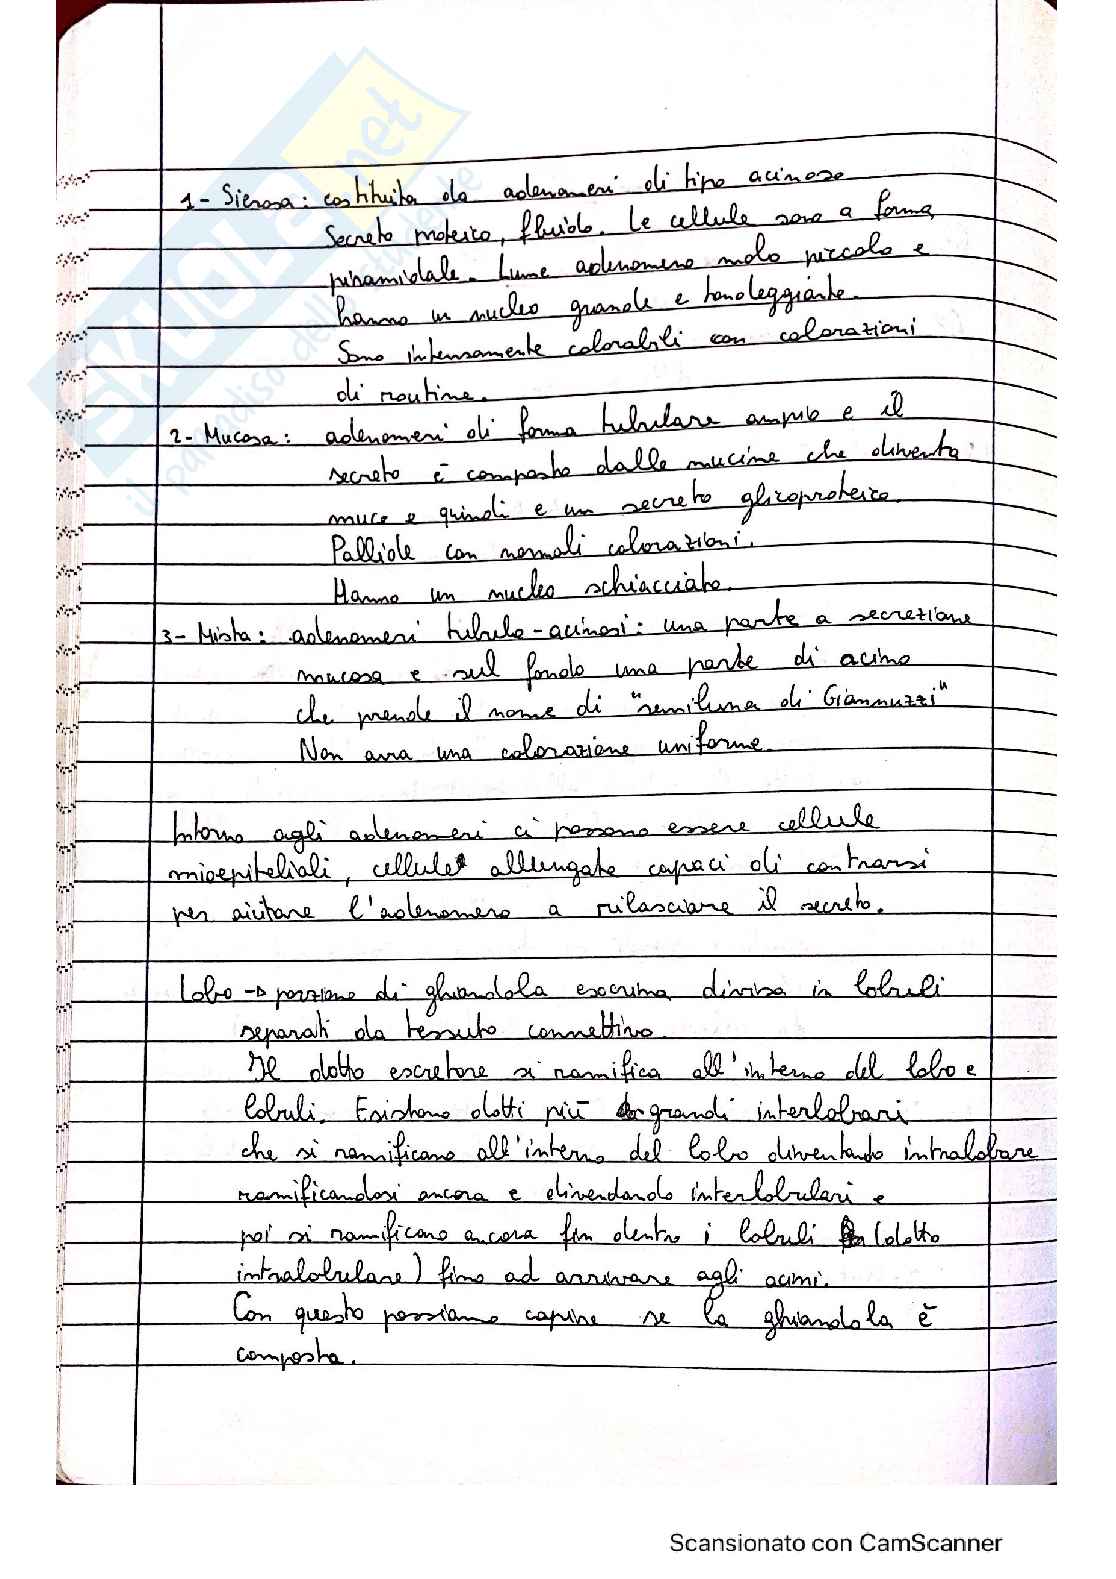 1- Sierosa: costituita da adenomeri di tipo acinoso
Secreto proteico, fluido. Le cellule sono a forma
piramidale. Lume adenomero molo piccolo e
hanno un nucleo grande e tondeggiante.
Sono intensamente colorabili con colorazioni
di routine.
2- Mucosa: adenomeri di forma tubulare ampio e il
secreto è composto dalle mucine che diventa
muco e quindi e un secreto glicoproteico.
Pallide con normali colorazioni.
Hanno un nucleo schiacciato.
3- Mista: adenomeri tubulo-acinosi: una parte a secrezione
mucosa e sul fondo una parte di acino
che prende il nome di "semiluna di Giannuzzi"
Non avra una colorazione uniforme.
Intorno agli adenomeri ci possono essere cellule
mioepiteliali, cellule allungate capaci di contrarsi
per aiutare l'adenomero a rilasciare il secreto.
Lobo → porzione di ghiandola esocrina divisa in lobuli
separati da tessuto connettivo.
Il dotto escretore si ramifica all'interno del lobo e
lobuli. Esistono dotti più grandi interlobari
che si ramificano all'interno del lobo diventando intralobare
ramificandosi ancora e divendando interlobulari e
poi si ramificano ancora fin dentro i lobuli (dotto
intralobulare) fino ad arrivare agli acini.
Con questo possiamo capire se la ghiandola è
composta.
SKUOLA.net
il paradiso dello studente
Scansionato con CamScanner